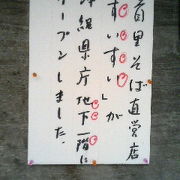 首里そば直営店
「すいすい」が
沖縄県庁地下一階に
オープンしました。